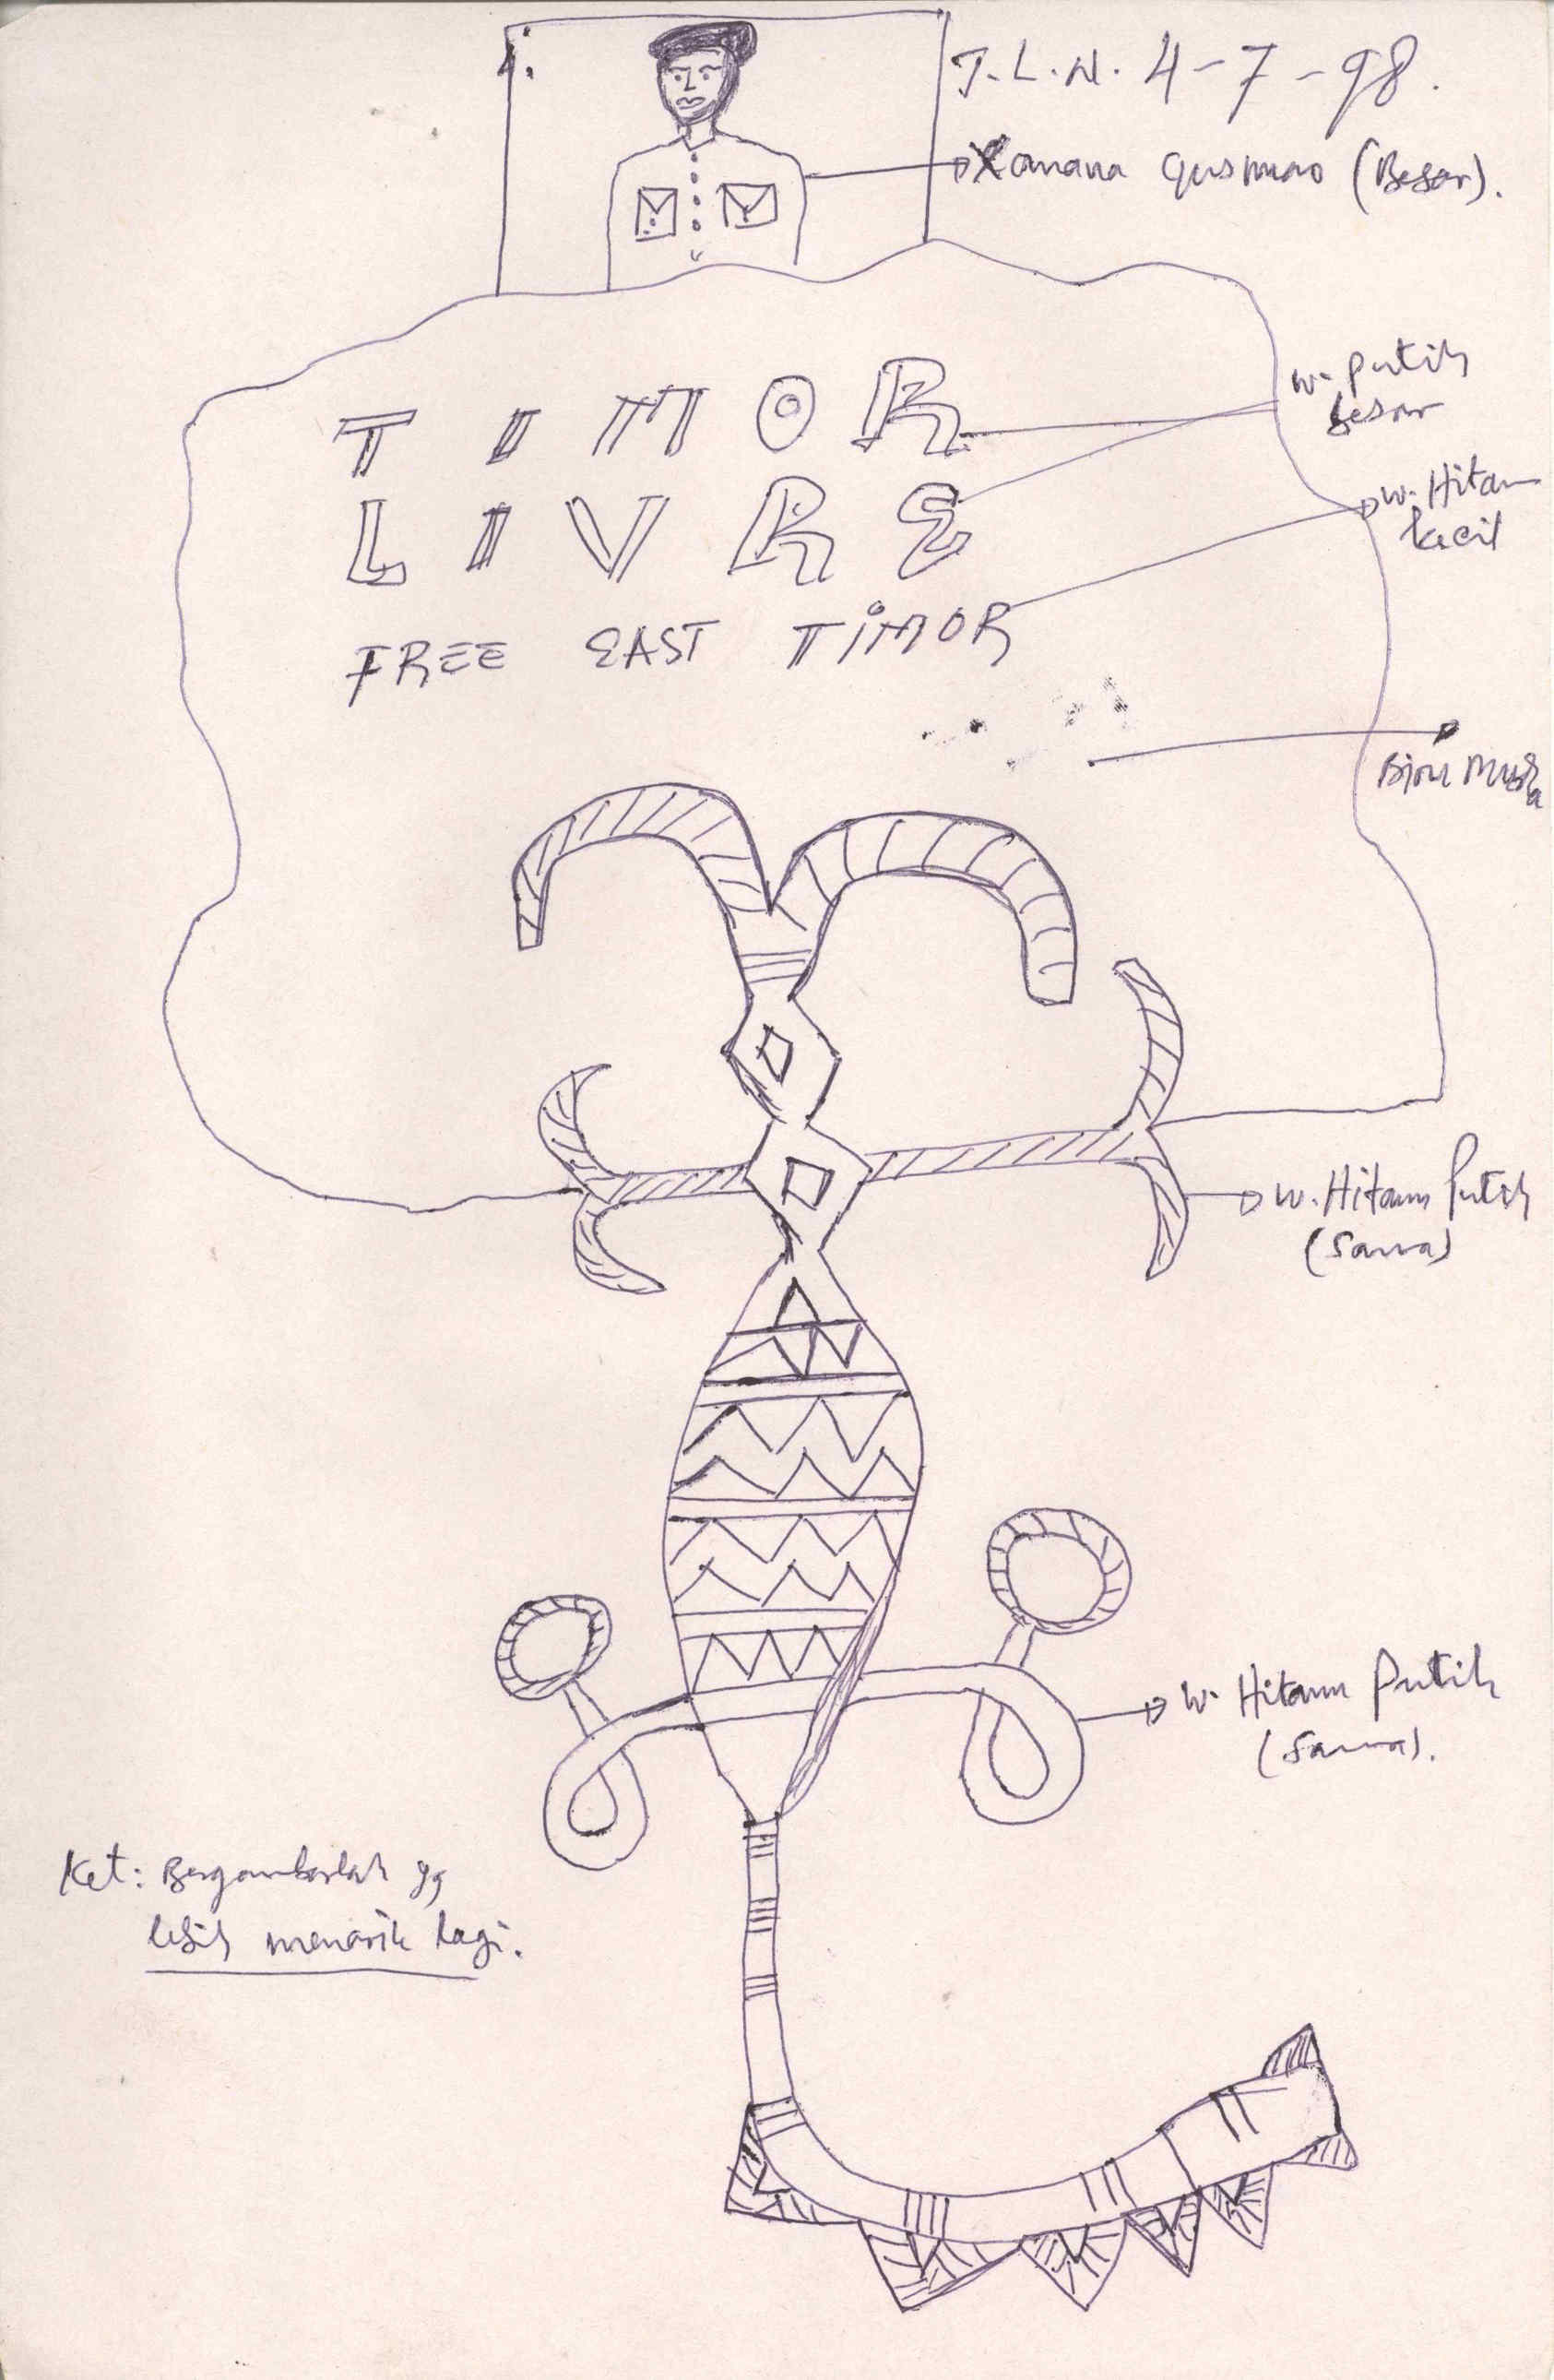 1.
T.L.N. 4-7-98.
Xanana Gusmao (Besar).
TIMOR
LIVRE
FREE EAST TIMOR
w. putih
besar
w. Hitam
kecil
Biru Muda
w. Hitam Putih
(Sama)
w. Hitam Putih
(Sama).
Ket: Bergambarlah yg
lebih menarik lagi.